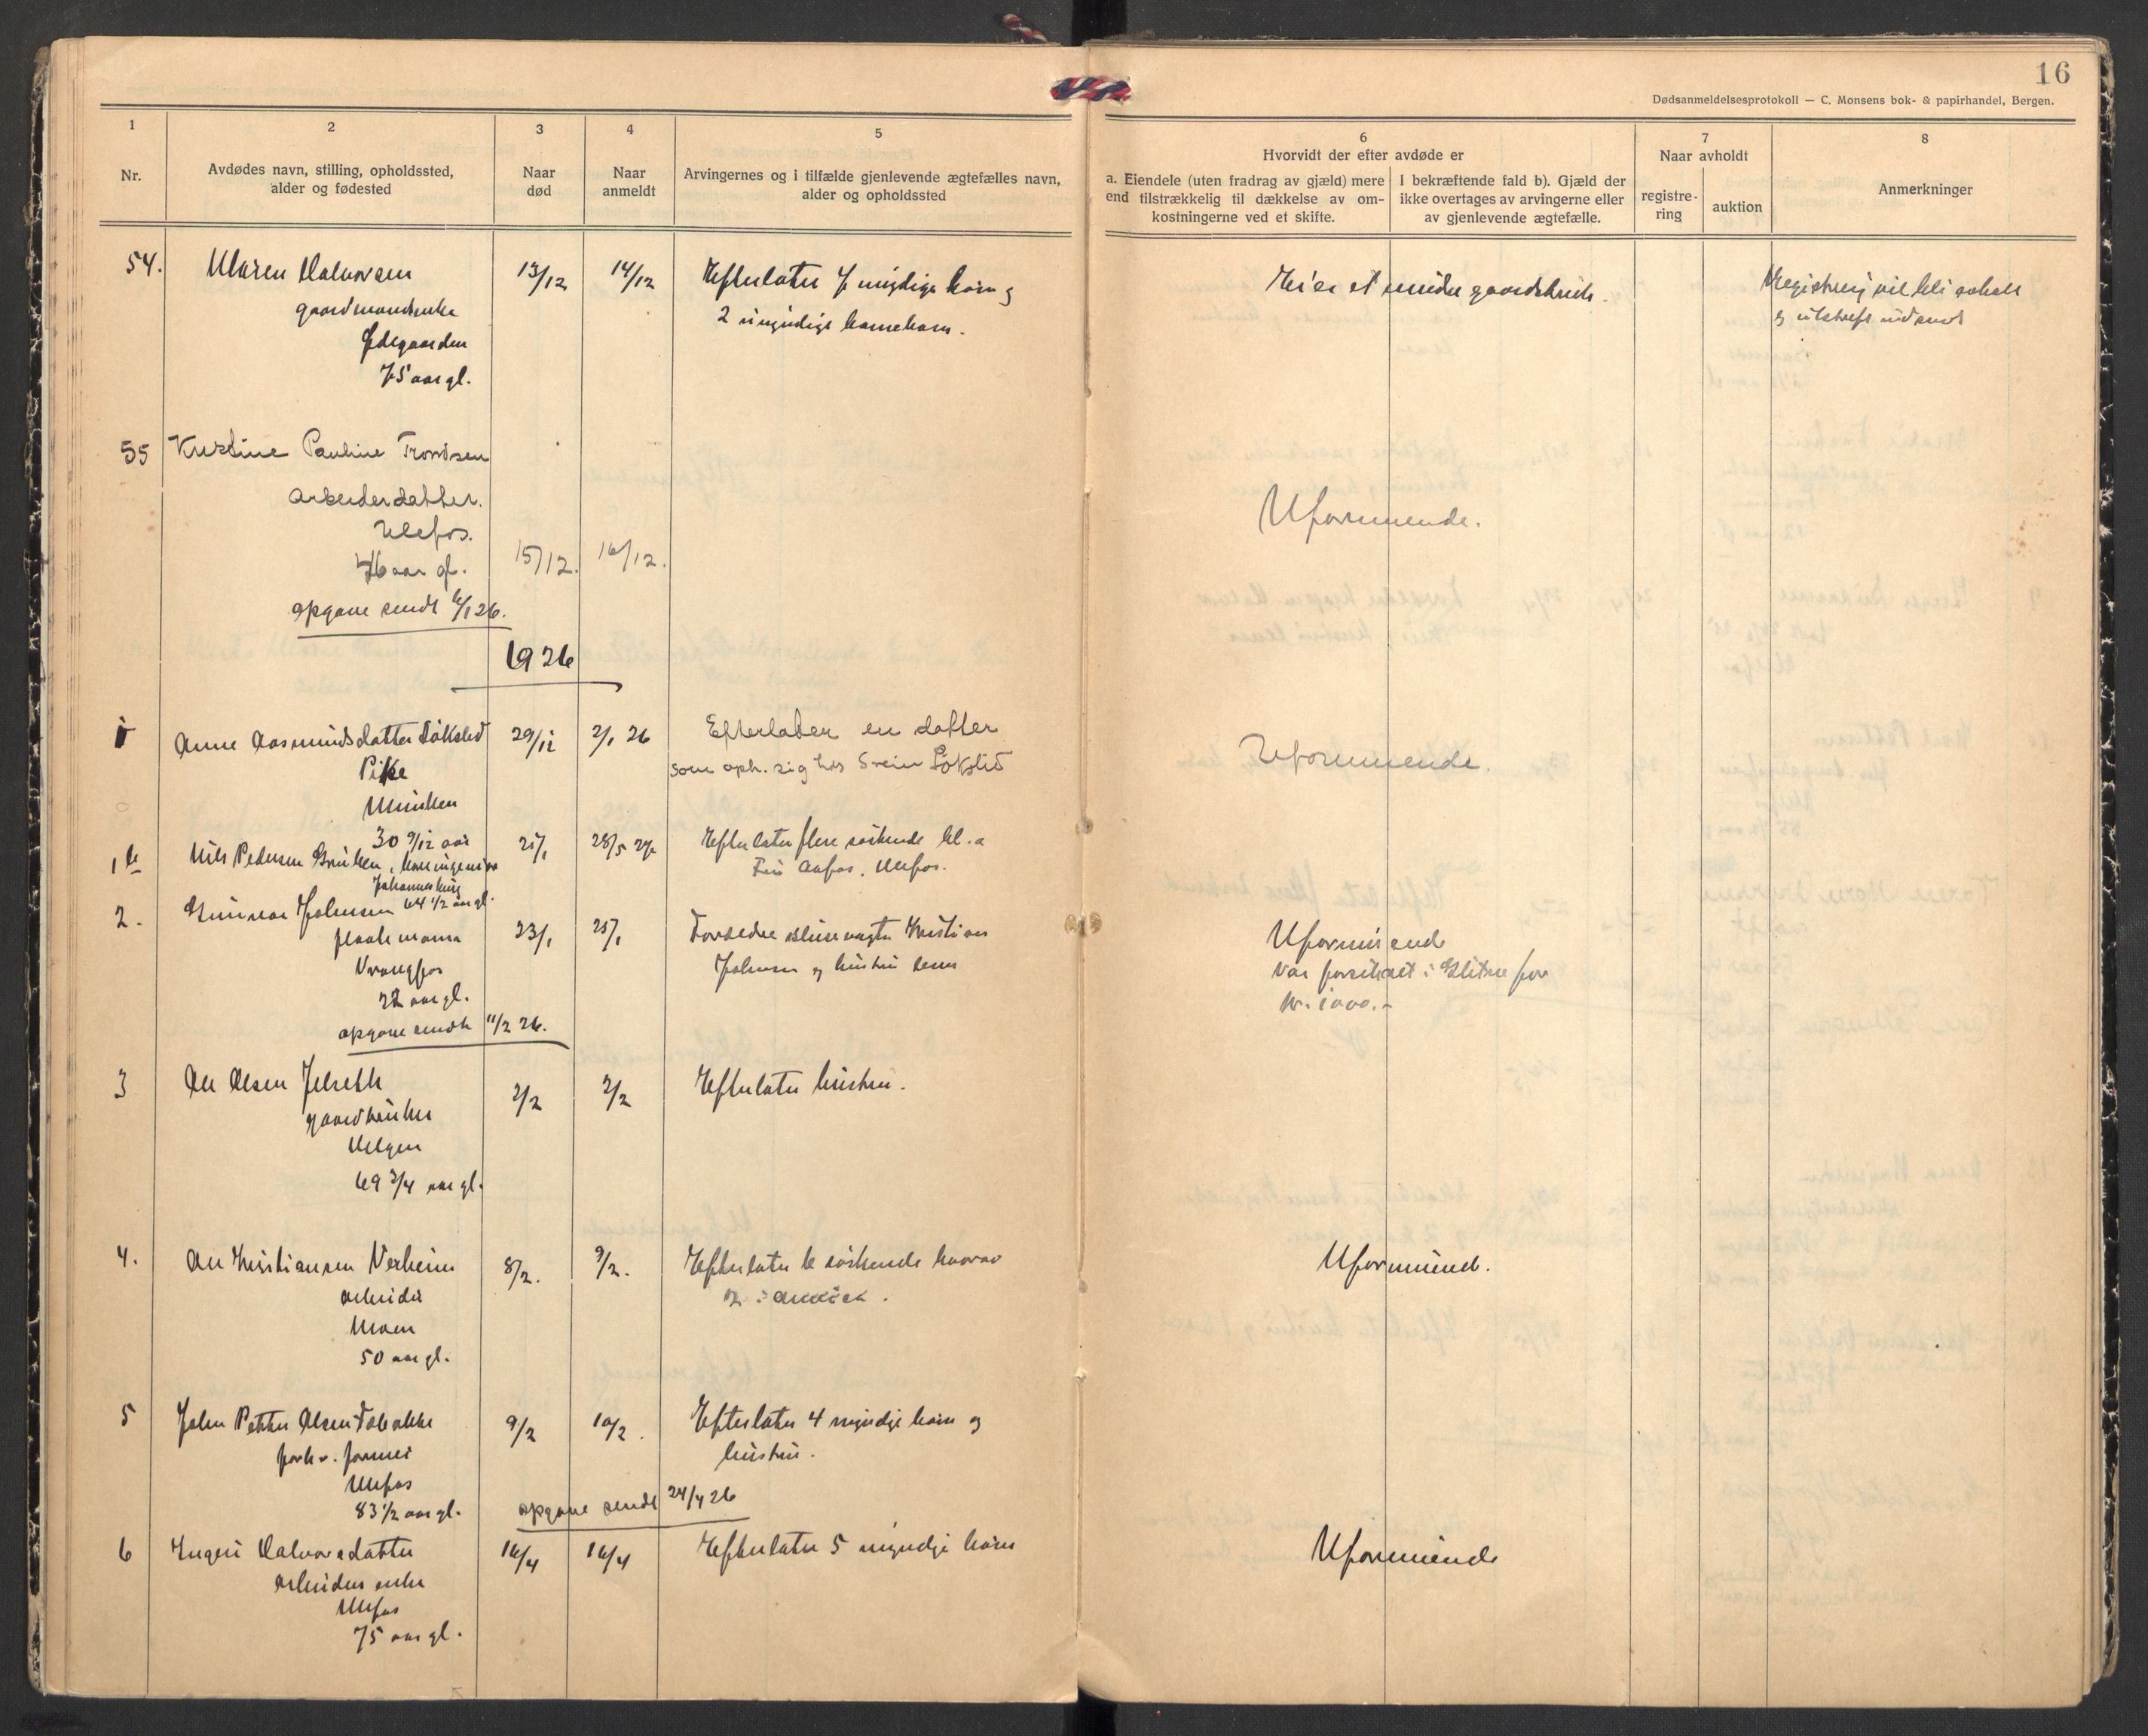 16
Dødsanmeldelsesprotokoll — C. Monsens bok- & papirhandel, Bergen.
1
Nr.
2
Avdødes navn, stilling, opholdssted,
alder og fødested
3
Naar
død
4
Naar
anmeldt
5
Arvingernes og i tilfælde gjenlevende ægtefælles navn,
alder og opholdssted
6
Hvorvidt der efter avdøde er
a. Eiendele (uten fradrag av gjæld) mere
end tilstrækkelig til dækkelse av om-
kostningerne ved et skifte.
I bekræftende fald b). Gjæld der
ikke overtages av arvingerne eller
av gjenlevende ægtefælle.
7
Naar avholdt
registre-
ring
auktion
8
Anmerkninger
54. Maren Halvorsen 13/12 14/12 Efterlater 7 myndige barn og
gaardmandsenke 2 umyndige barnebarn.
Ødegaarden
75 aar gl.
Eier et mindre gaardsbruk.
Registrering vil bli avholdt
og utskrift indsendt
55 Kristine Pauline Trondsen
arbeiderdatter.
Ulefos.
76 aar gl. 15/12. 16/12.
Uformuende.
opgave sendt 6/1 26.
1926
1 Anne Aasmundsdatter Løkslid 29/12 2/1 26 Efterlader en datter
Pike som oph. sig hos Svein Løkslid
Munken
30 9/12 aar
Uformuende.
1b Nils Pedersen 28/5 Efterlater flere søskende bl.a
Ulefos.
Johannesburg
64 1/2 aar gl.
2. Gunnar Johnsen 23/1 25/1 Forældre slusevagt Kristian
Johnsen og hustru
Vrangfos
22 aar gl.
Uformuende
Var forsikret i Glitne for
kr. 1000.-
opgave sendt 11/2 26.
3 Ole Olsen Jelseth 2/2 2/2 Efterlater hustru.
gaardbruker
Helgen
69 3/4 aar gl.
4. Ole Kristiansen Verheim 8/2. 9/2. Efterlater 6 søskende hvorav
arbeider 2 i Amerika.
Moen
50 aar gl.
Uformuend.
5 John Petter Olsen 9/2 10/2. Efterlater 4 myndige barn og
forh.v. former hustru.
Ulefos
83 1/2 aar gl.
opgave sendt 24/4 26
6 Ingeri Halvorsdatter 16/4 16/4 Efterlater 5 myndige barn
arbeider enke
Ulefos
75 aar gl.
Uformuende